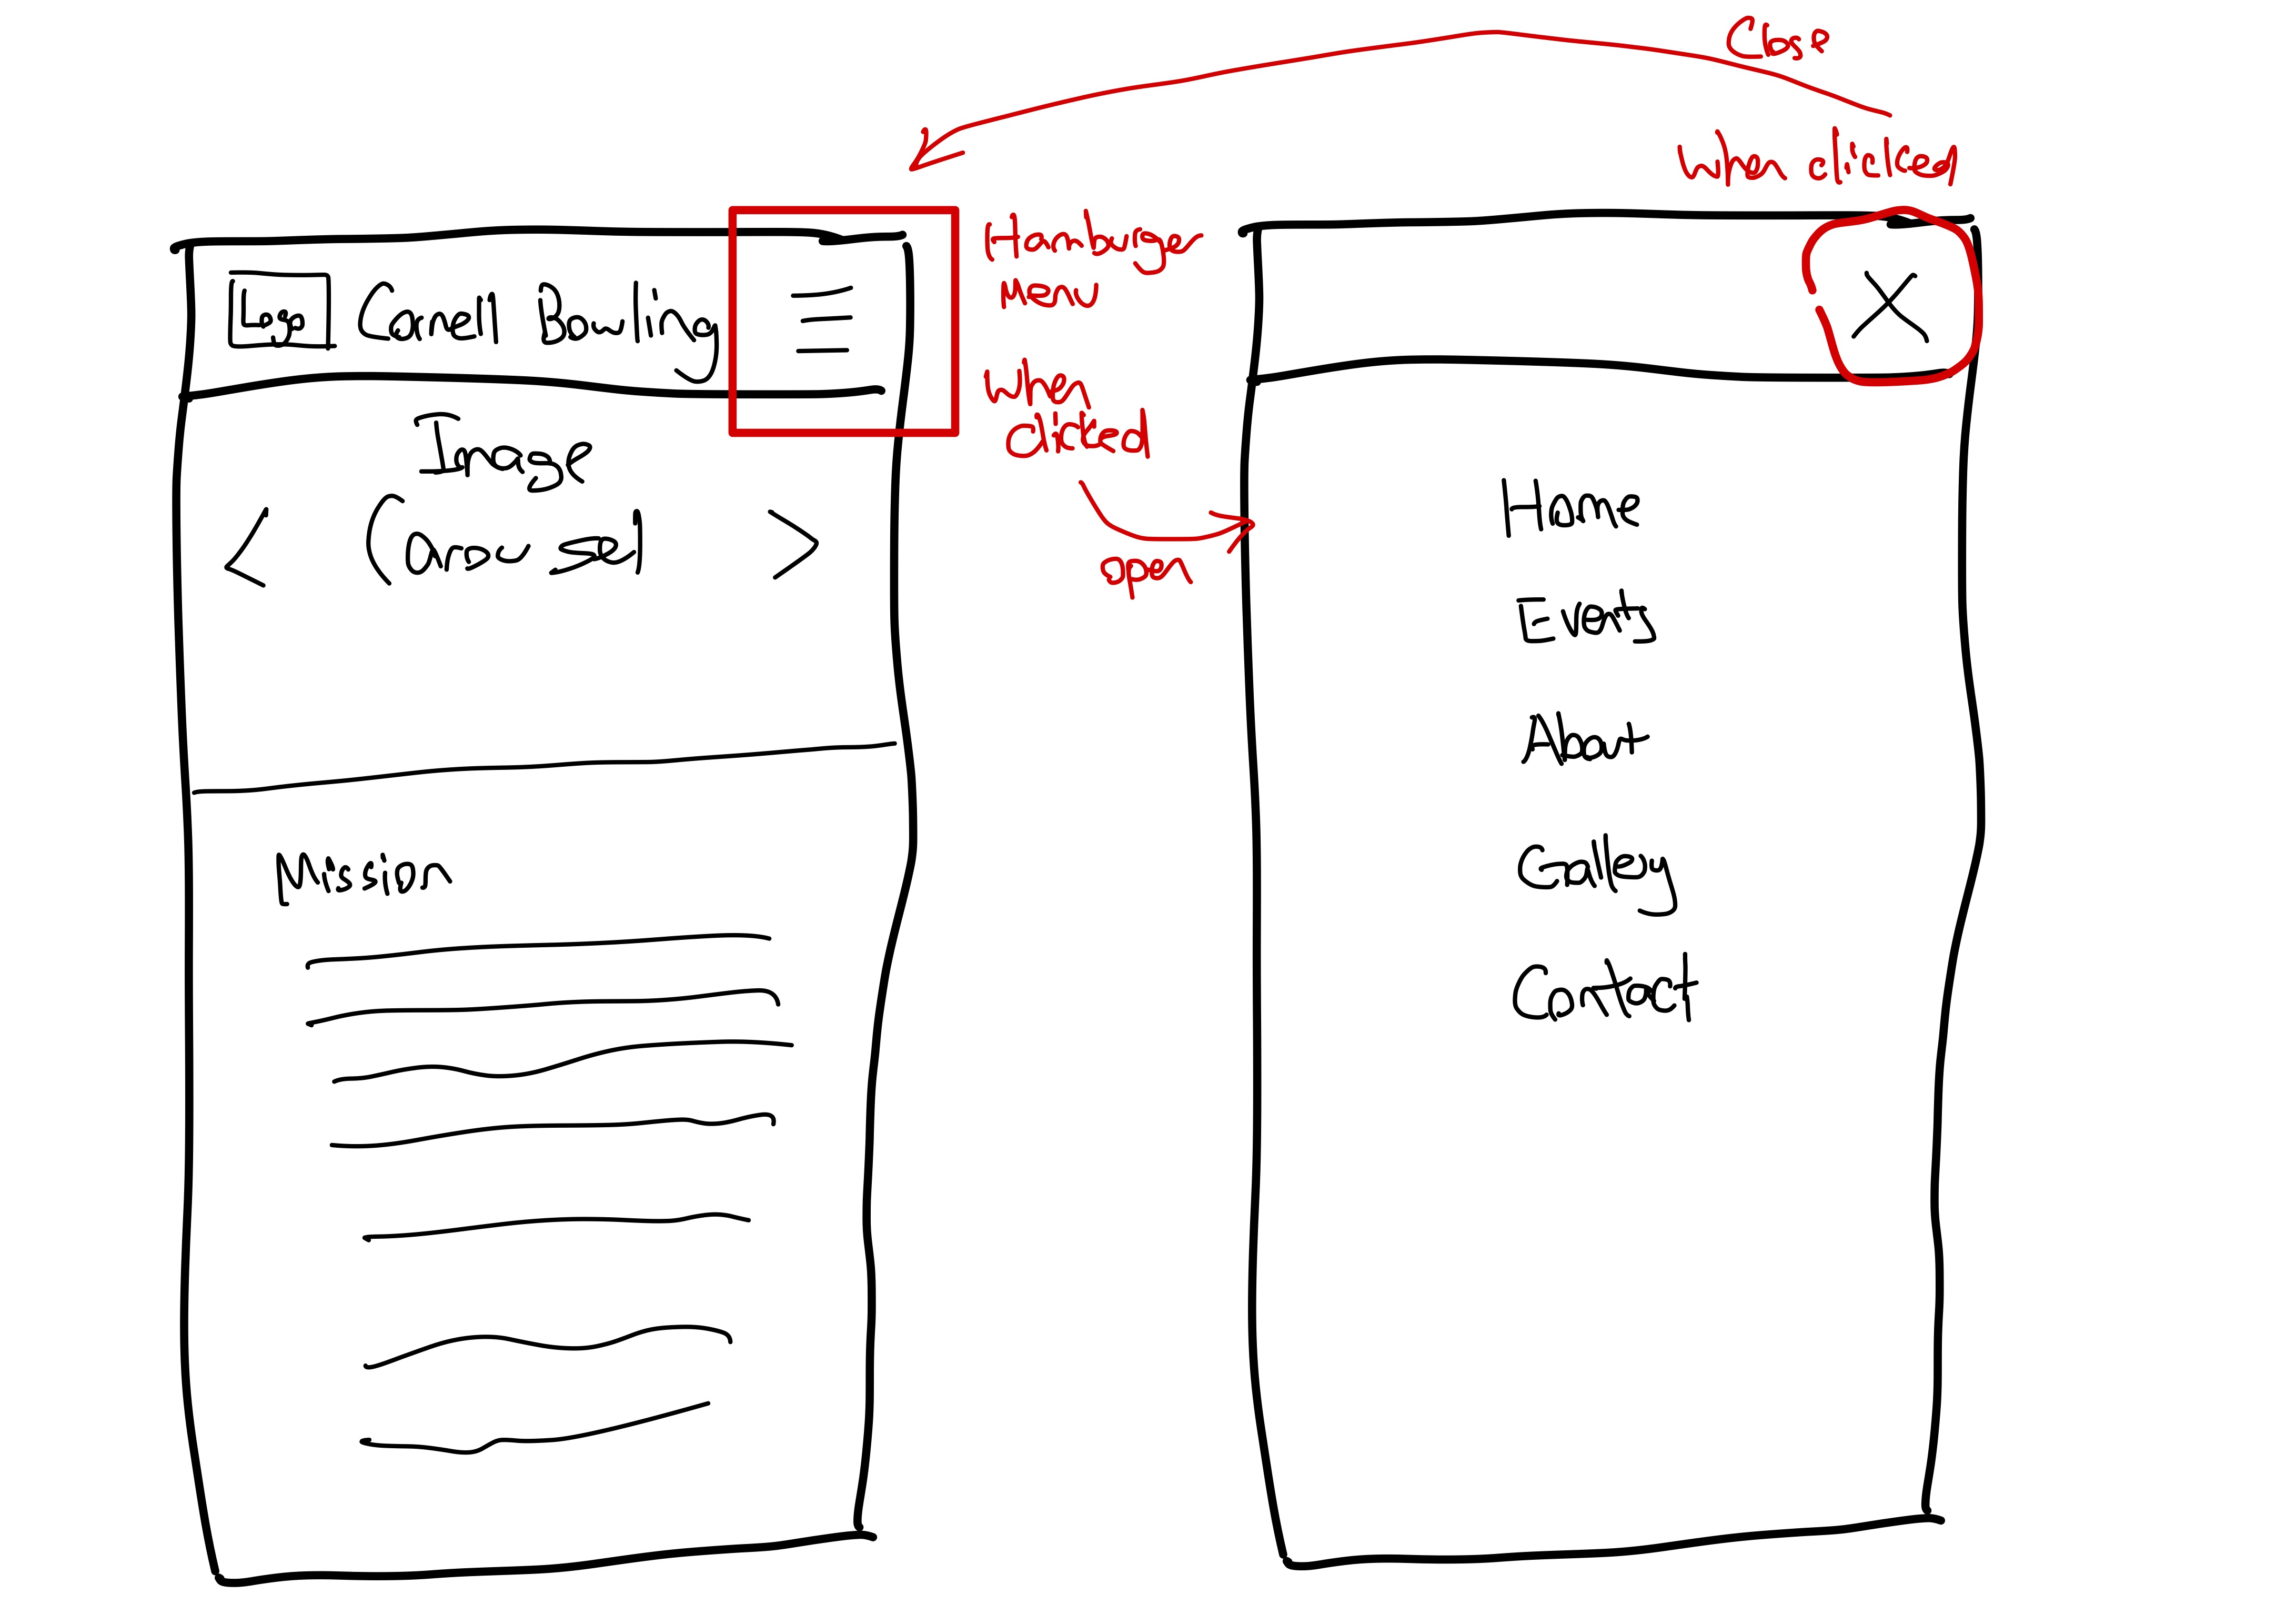 Close
When clicked
Logo Cornell Bowling
Hamburger
Menu
When
Clicked
open
Image
< Carousel >
Mission
X
Home
Events
About
Gallery
Contact